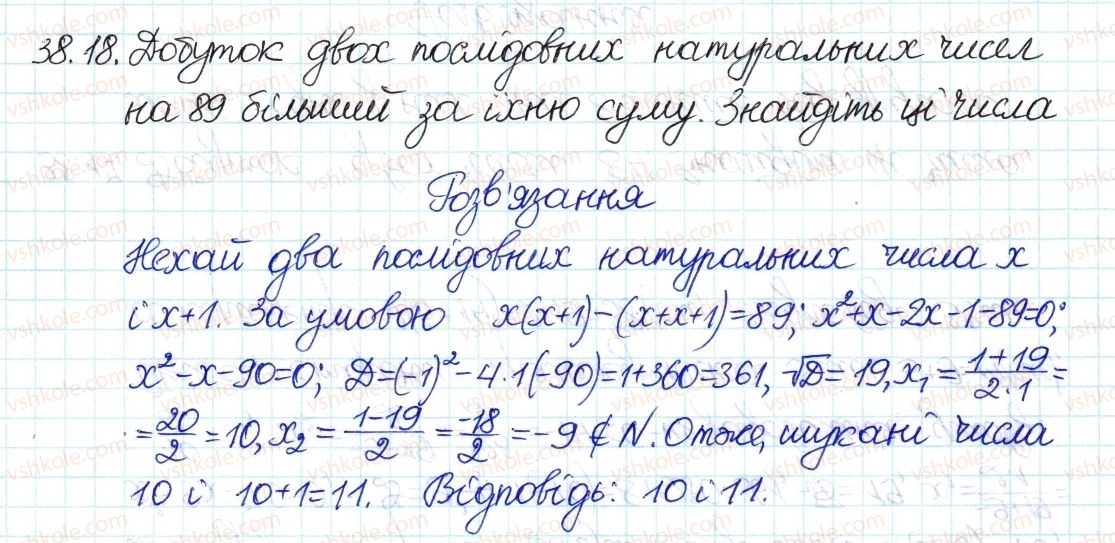 38.18. Добуток двох послідовних натуральних чисел
на 89 більший за їхню суму. Знайдіть ці числа
Розв'язання
Нехай два послідовних натуральних числа x
і x+1. За умовою x(x+1)-(x+x+1)=89; x²+x-2x-1-89=0;
x²-x-90=0; D=(-1)²-4·1(-90)=1+360=361, √D=19, x₁=(1+19)/(2·1)=
=20/2=10, x₂=(1-19)/2=-18/2=-9∉N. Отже, шукані числа
10 і 10+1=11. Відповідь: 10 і 11.